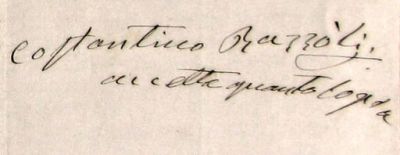 Costantino Razzòli
accetta quanto sopra